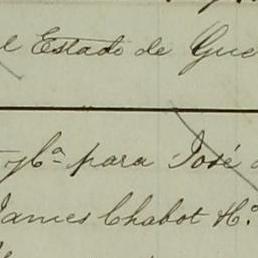 el Estado de Gue
para José
James Chabot Hº.